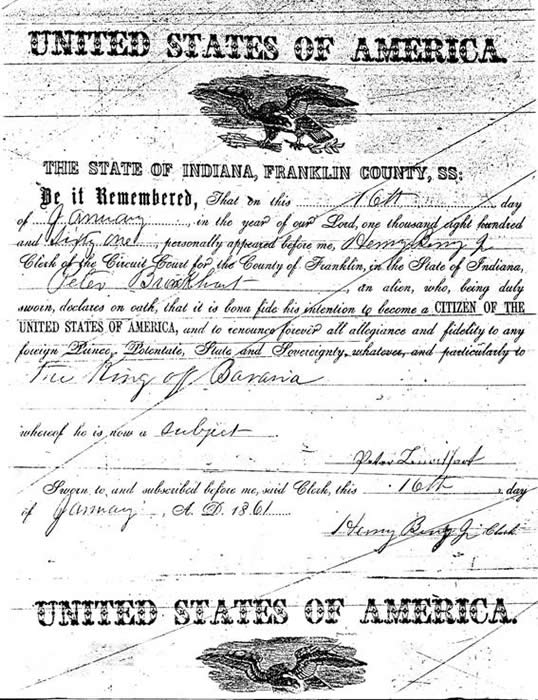 UNITED STATES OF AMERICA.
THE STATE OF INDIANA, FRANKLIN COUNTY, SS:
Be it Remembered, That on this 16th day
of January, in the year of our Lord, one thousand eight hundred
and Sixty One, personally appeared before me, Henry Berry Jr
Clerk of the Circuit Court for the County of Franklin, in the State of Indiana,
Peter , an alien, who, being duly
sworn, declares on oath, that it is bona fide his intention to become a CITIZEN OF THE
UNITED STATES OF AMERICA, and to renounce forever all allegiance and fidelity to any
foreign Prince, Potentate, State and Sovereignty, whatever, and particularly to
The King of Bavaria
whereof he is now a Subject
Peter
Sworn to, and subscribed before me, said Clerk, this 16th day
of January, A. D. 1861
Henry Berry Jr Clerk
UNITED STATES OF AMERICA.